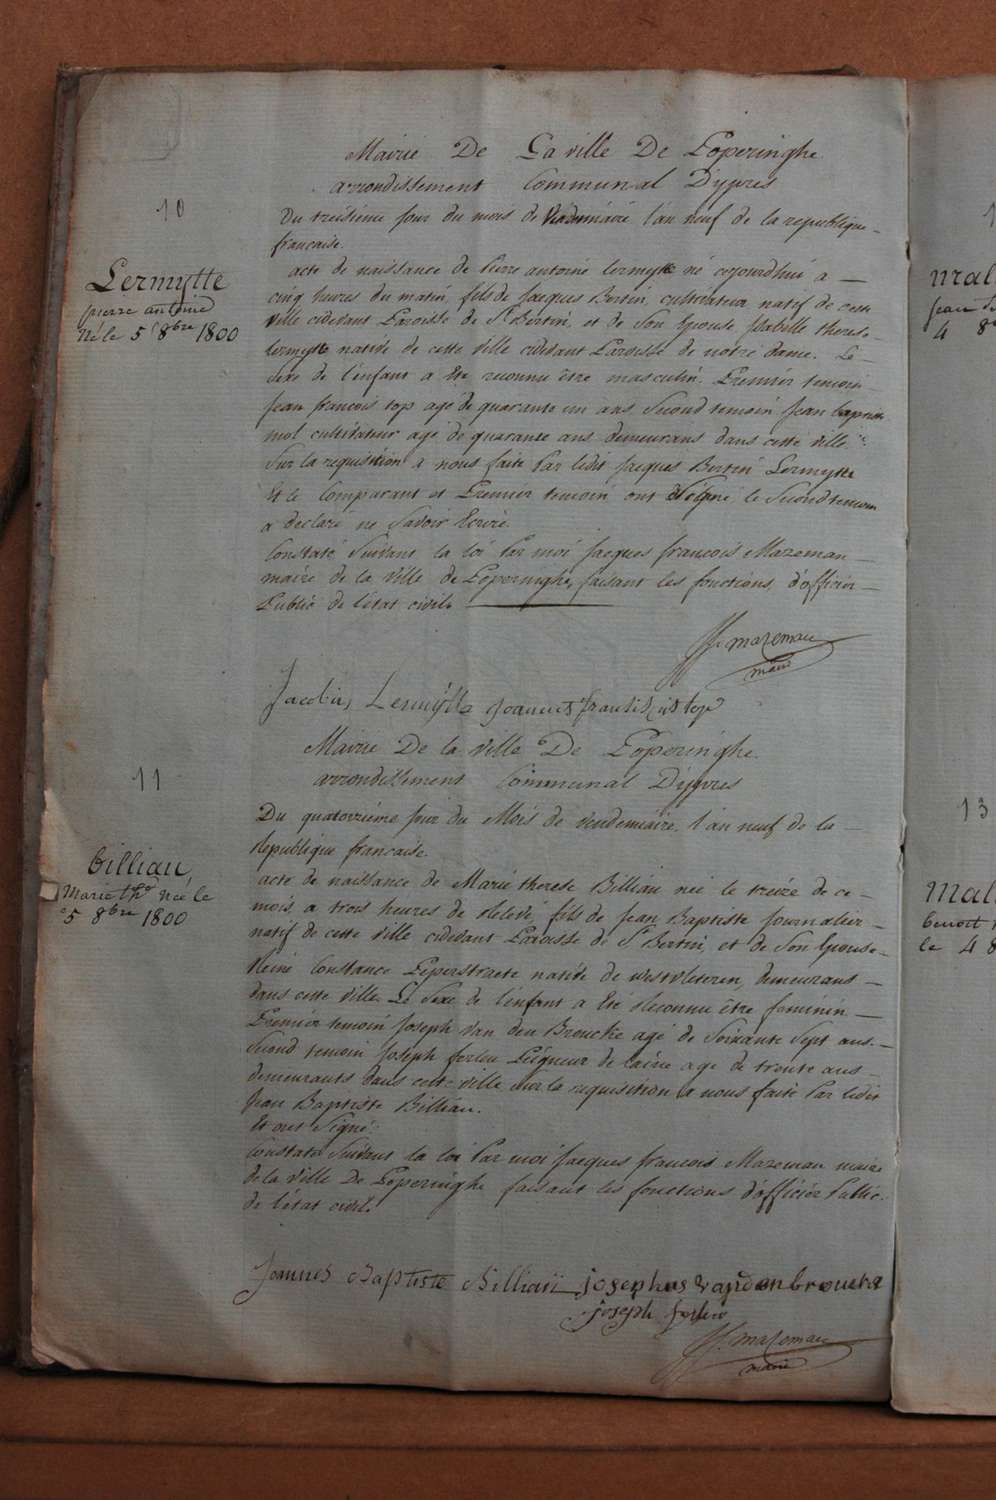 10
Lermytte
pierre antoine
Né le 5 8bre 1800
Mairie De La ville De Poperinghe
arrondissement Communal D'ypres
Du treisiéme jour du mois de Vendemiaire l'an neuf de la republique
francaise.
acte de naissance de Pierre antoine Lermytte né cejourdhui a
cinq heures du matin, fils de Jacques Bertin, cultivateur natif de cette
ville cidevant Paroisse de St Bertin, et de Son Epouse Isabelle therese
Lermytte native de cette ville cidevant Paroisse de notre dame. Le
Sexe de l'enfant a été reconnu être masculin. Premier temoin
Jean francois top agé de quarante un ans Second temoin Jean baptiste
mol cultivateur agé de quarante ans demeurans dans cette ville.
Sur la requisition a nous faite Par ledit Jacques Bertin Lermytte
Et le Comparant et Premier temoin ont Signé le Second temoin
a declaré ne Savoir Ecrire.
Constaté Suivant la loi Par moi Jacques francois Mazeman
maire de la ville de Poperinghe, faisant les fonctions d'officier
Public de l'état civil.
J.f. mazeman
maire
Jacobus Lermytte Joannes fransiscus top
11
billiau,
Marie thse Née le
5 8bre 1800
Mairie De la ville De Poperinghe
arrondissement Communal D'ypres
Du quatorziéme jour du Mois de vendemiaire l'an neuf de la
Republique francaise.
acte de naissance de Marie therese Billiau née le treize de ce
mois, a trois heures de Relevé, fils de Jean Baptiste Journalier
natif de cette ville cidevant Paroisse de St Bertin, et de Son Epouse
Reine Constance Peperstraete native de westvleteren, demeurans
dans cette ville. Le Sexe de l'enfant a été Reconnu être feminin
Premier temoin Joseph Van den Broucke agé de Soixante Sept ans.
Second temoin Joseph Peigneur de laine age de trente ans
demeurants dans cette ville sur la requisition a nous faite Par ledit
Jean Baptiste Billiau.
Et ont Signé.
Constaté Suivant la loi Par moi Jacques francois Mazeman maire
de la ville De Poperinghe faisant les fonctions d'officier Public
de l'état civil.
Joannes Baptiste Billiaü Josephus vandenbroucke
joseph
J.f. mazeman
maire
4 8
13
benoit
le 4 8